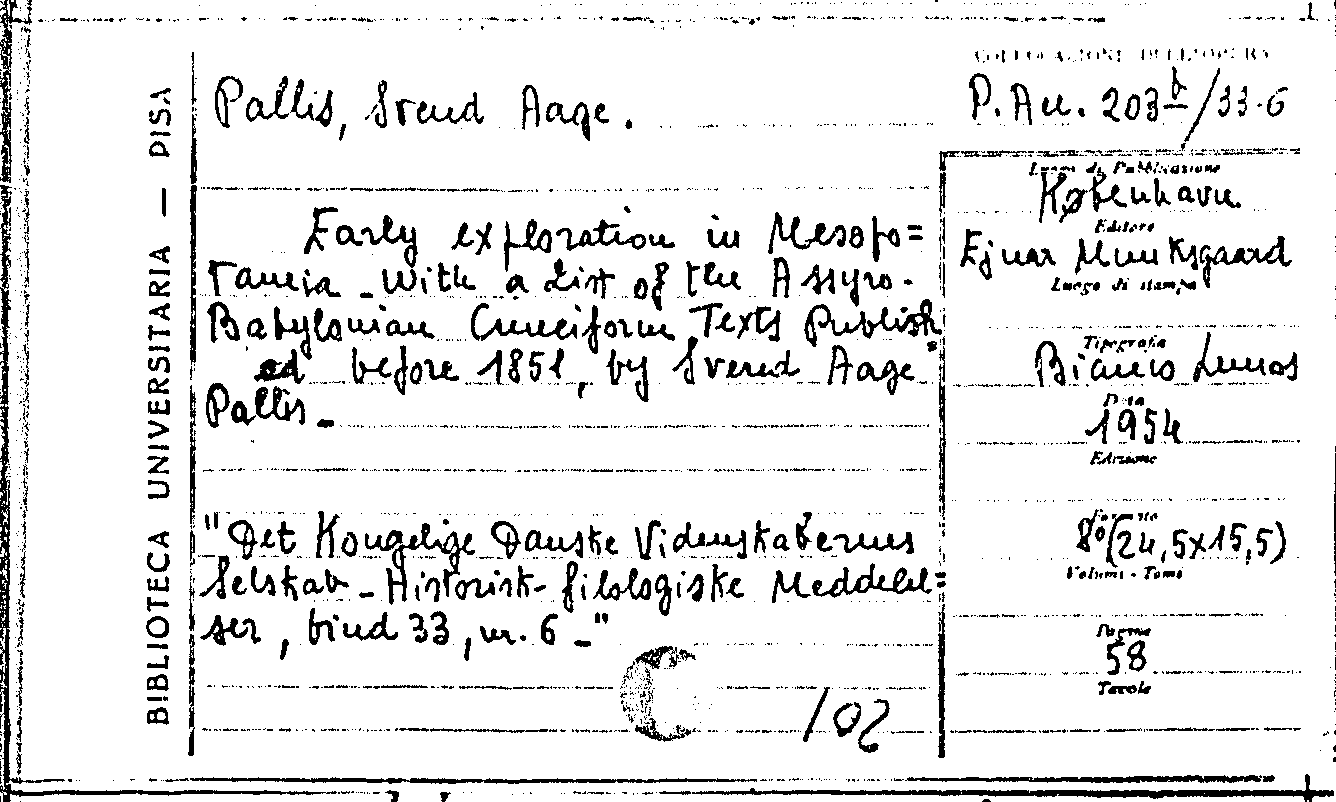 BIBLIOTECA UNIVERSITARIA — PISA
COLLOCAZIONE DELL'OPERA
P. Acc. 203 b/33-6
Pallis, Svend Aage.
Early exploration in Mesopo=
tamia _ With a List of the Assyro-
Babylonian Cuneiform Texts Publish=
ed before 1851, by Svend Aage
Pallis._
"Det Kongelige Danske Videnskabernes
Selskab _ Historisk-filologiske Meddelel=
ser, bind 33, nr. 6 _"
102
Luogo di Pubblicazione
København.
Editore
Ejnar Munksgaard
Luogo di stampa
Tipografia
Bianco Lunos
Data
1954
Edizione
Formato
8º (24,5x15,5)
Volumi - Tomi
Pagine
58
Tavole